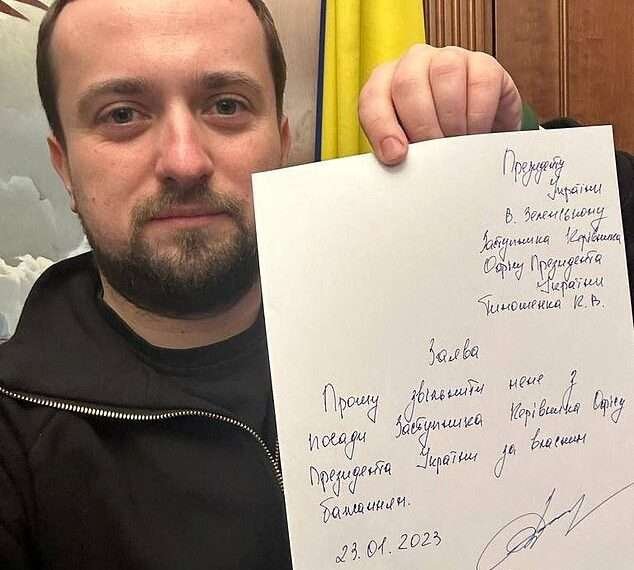 Президенту
України
В. Зеленському
Заступника Керівника
Офісу Президента
України
Тимошенка К.В.
Заява
Прошу звільнити мене з
посади Заступника Керівника Офісу
Президента України за власним
бажанням.
23.01.2023